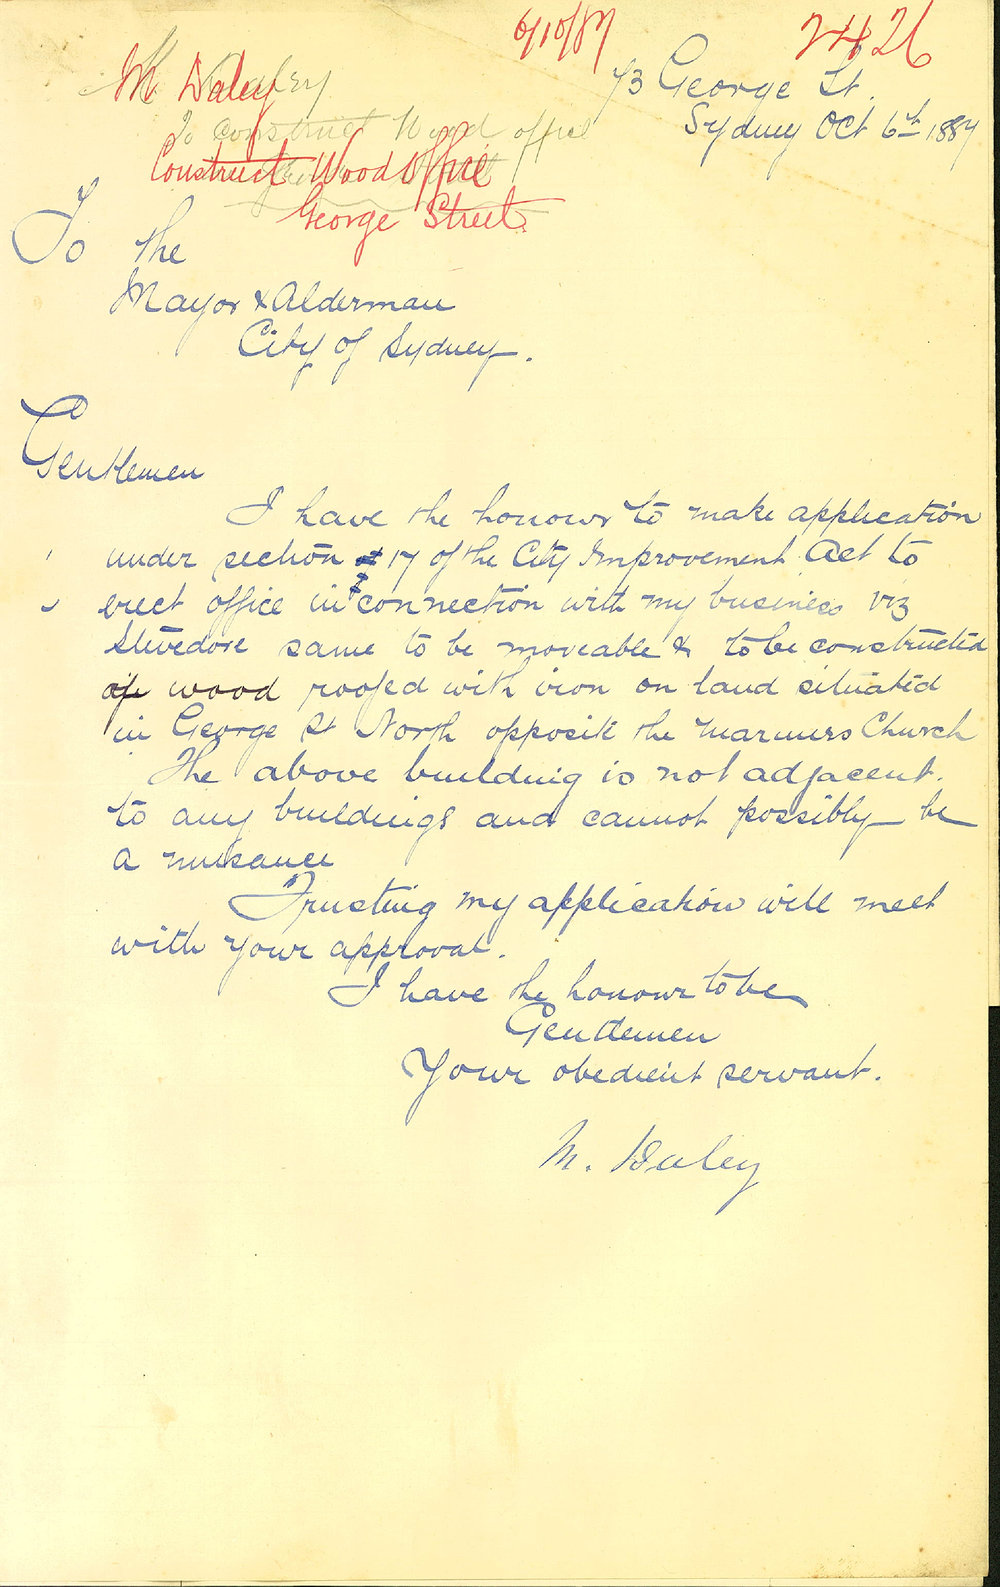 6/10/87 2426
M. Daley
M Daley
To construct Wood office
Construct Wood Office
George Street
73 George St.
Sydney Oct 6th 1887
To the
Mayor & Alderman
City of Sydney.
Gentlemen
I have the honour to make application
under section 17 of the City Improvement Act to
erect office in connection with my business viz
Stevedore same to be moveable & to be constructed
of wood roofed with iron on land situated
in George St North opposite the Mariners Church
The above building is not adjacent
to any buildings and cannot possibly be
a nuisance
Trusting my application will meet
with your approval.
I have the honour to be
Gentlemen
Your obedient servant.
M. Daley